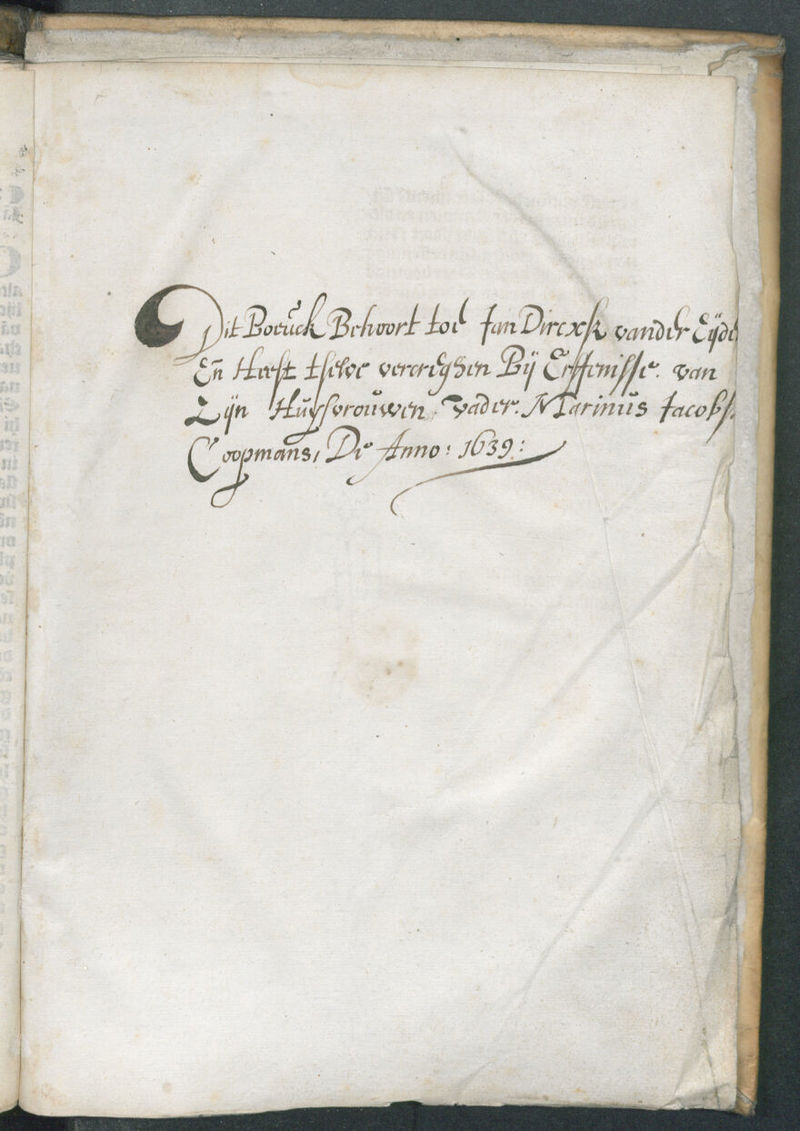 Dit Boeück Behoort toe Jan Dircxsz vander Eijde
Eñ Heeft tselve vercreghen Bij Erffenisse. van
Zijn Huijsvroüwen. vader. Marinüs Jacobss.
Coopmans, De Anno: 1639: